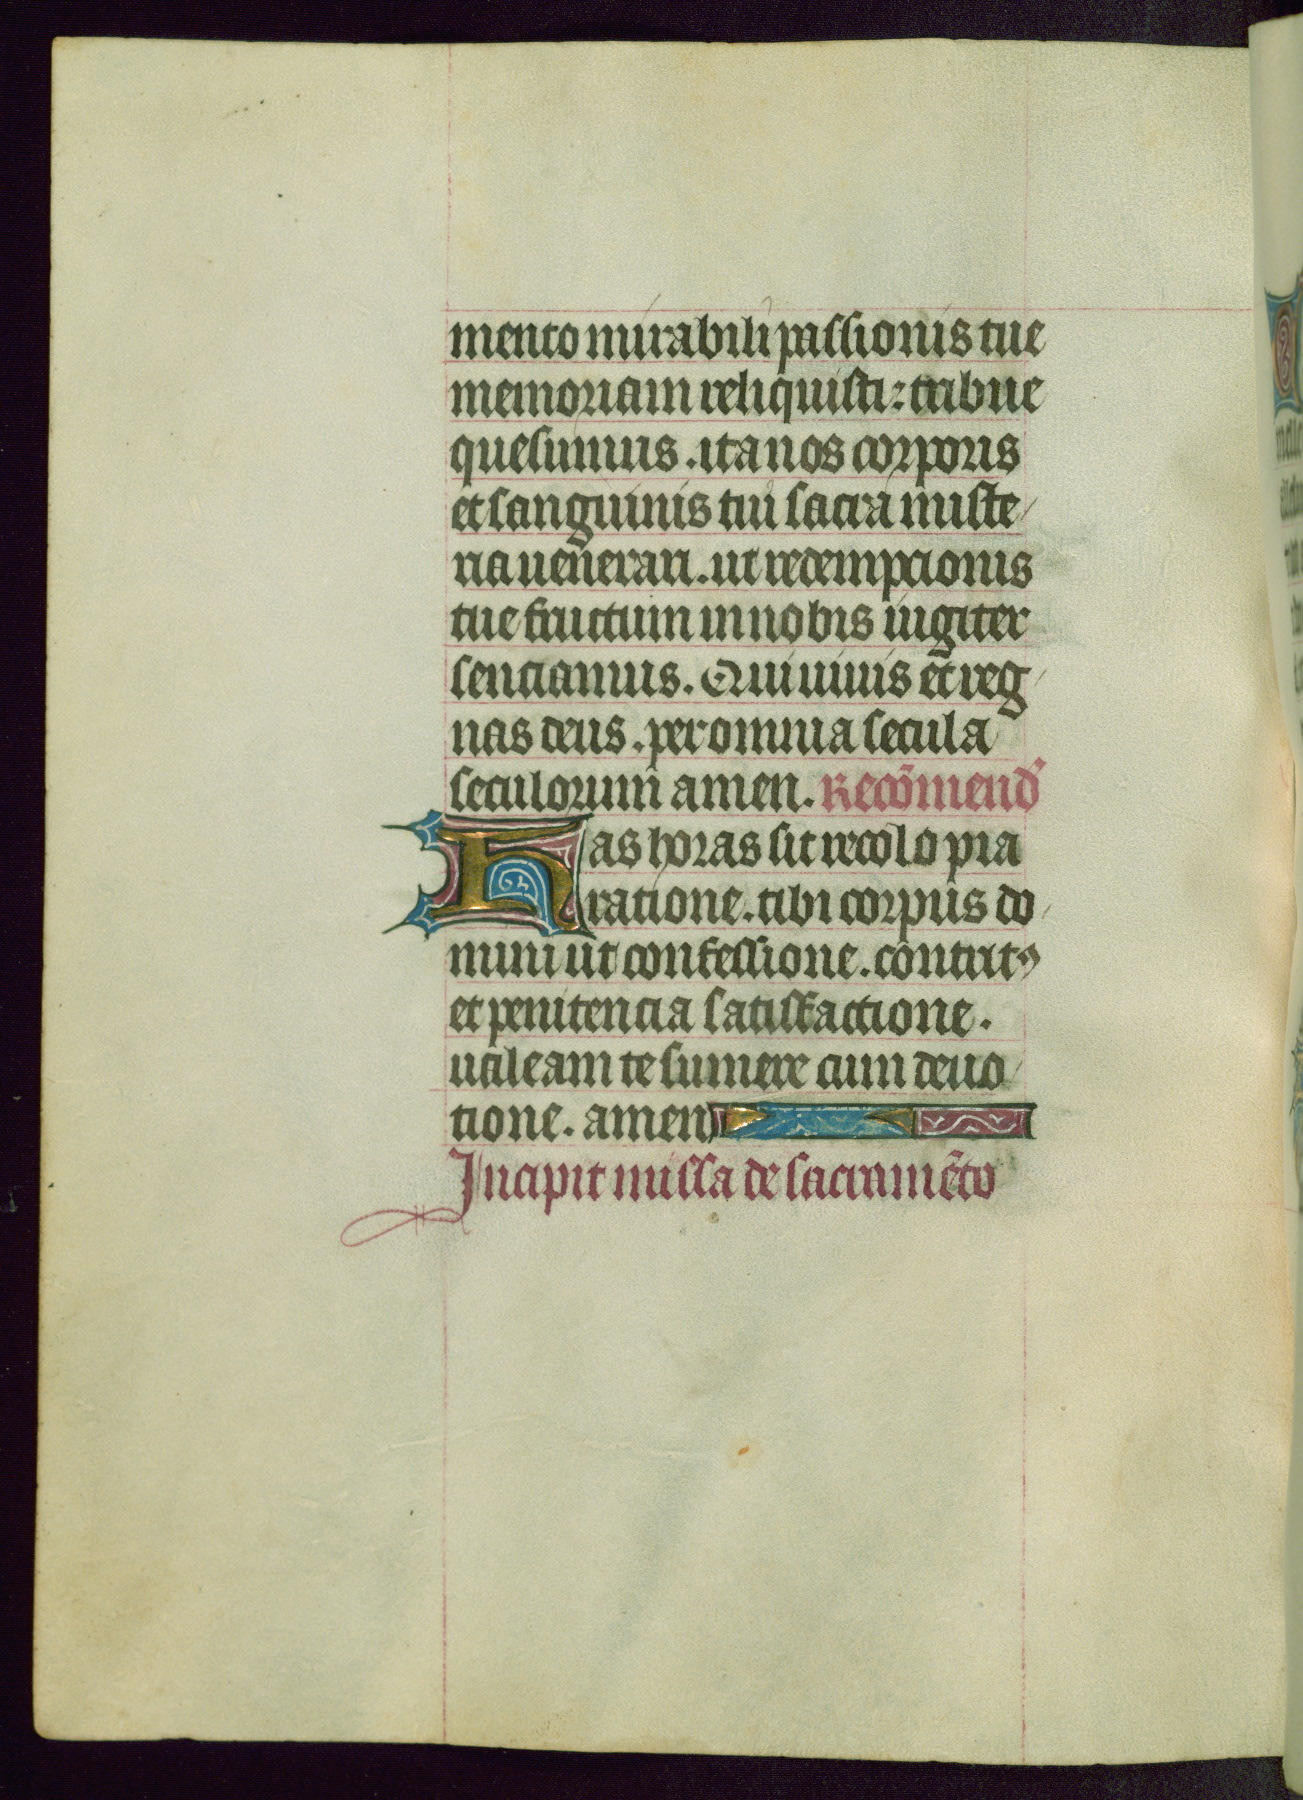 mento mirabili passionis tue
memoriam reliquisti: tribue
quesumus. ita nos corporis
et sanguinis tui sacra miste
ria uenerari. ut redempcionis
tue fructum in nobis iugiter
senciamus. Qui uiuis et reg
nas deus. per omnia secula
seculorum amen. Recõmend
Has horas sit recolo pia
ratione. tibi corpus do
mini ut confessione. contrit
et penitencia satisfactione.
ualeam te sumere cum deuo
tione. amen
Incipit missa de sacramẽto